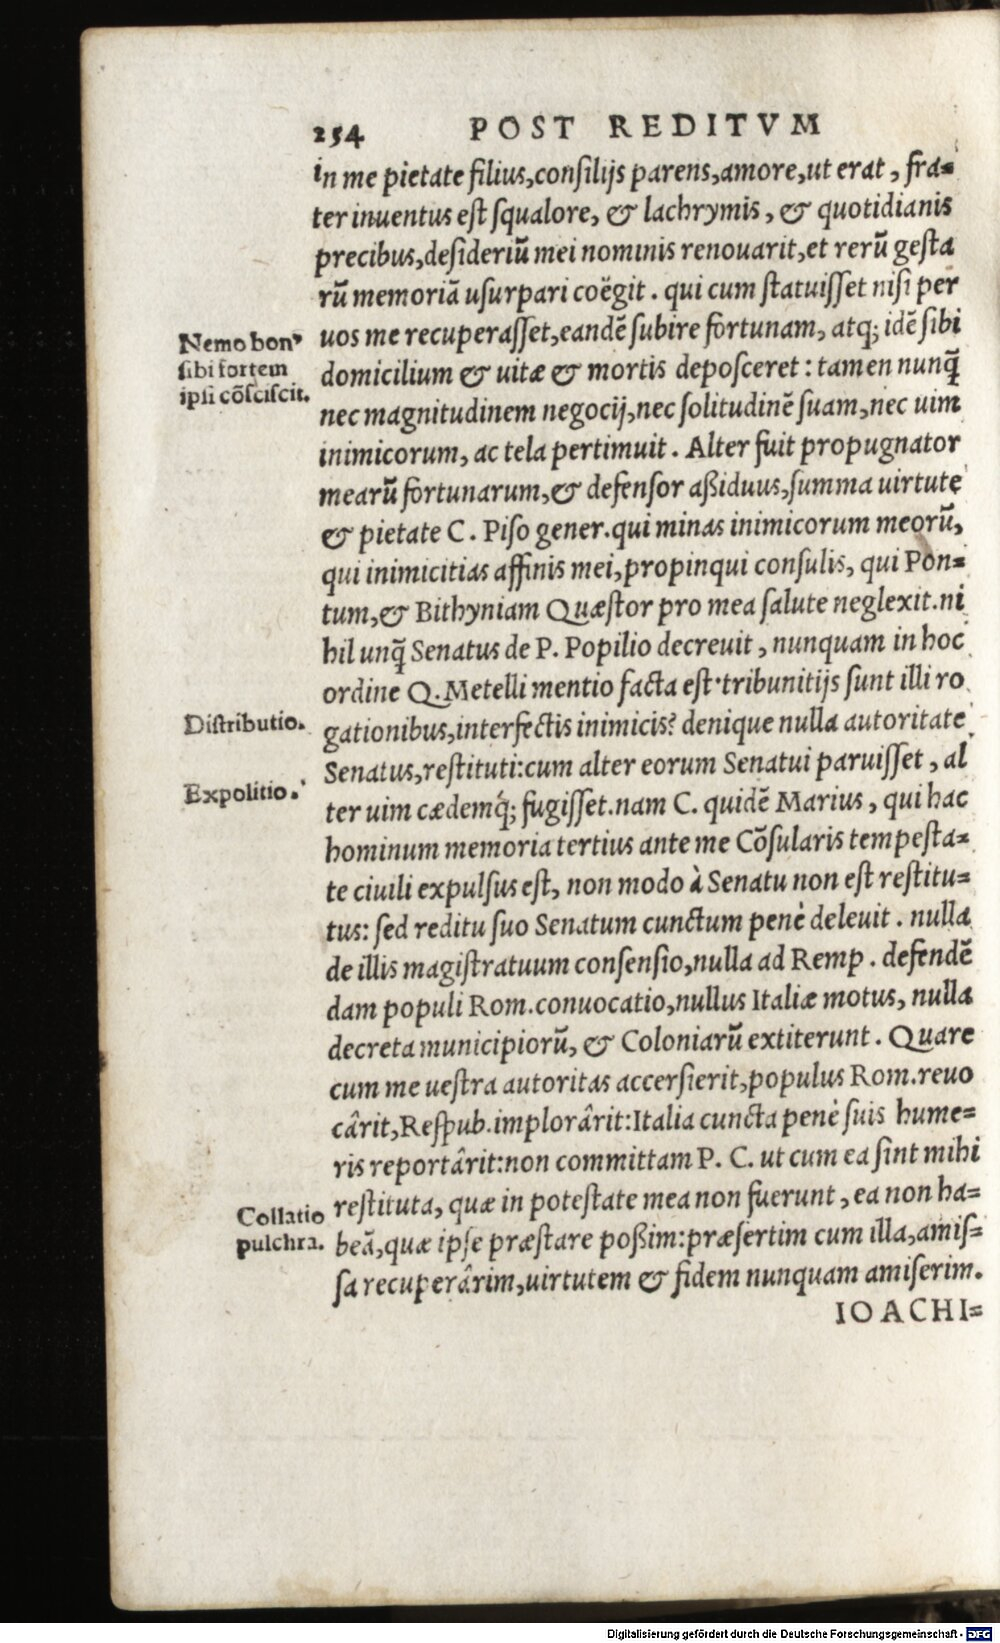 254 POST REDITVM
in me pietate filius, consilijs parens, amore, ut erat, fra=
ter inuentus est squalore, & lachrymis, & quotidianis
precibus, desideriū mei nominis renouarit, et rerū gesta
rū memoriā usurpari coëgit. qui cum statuisset nisi per
uos me recuperasset, eandē subire fortunam, atq; idē sibi
domicilium & uitæ & mortis deposceret: tamen nunq̃
nec magnitudinem negocij, nec solitudinē suam, nec uim
inimicorum, ac tela pertimuit. Alter fuit propugnator
mearū fortunarum, & defensor aßiduus, summa uirtute
& pietate C. Piso gener. qui minas inimicorum meorū,
qui inimicitias affinis mei, propinqui consulis, qui Pon=
tum, & Bithyniam Quæstor pro mea salute neglexit. ni
hil unq̃ Senatus de P. Popilio decreuit, nunquam in hoc
ordine Q. Metelli mentio facta est· tribunitijs sunt illi ro
gationibus, interfectis inimicis? denique nulla autoritate
Senatus, restituti: cum alter eorum Senatui paruisset, al
ter uim cædemq́; fugisset. nam C. quidē Marius, qui hac
hominum memoria tertius ante me Cōsularis tempesta=
te ciuili expulsus est, non modo à Senatu non est restitu=
tus: sed reditu suo Senatum cunctum penè deleuit. nulla
de illis magistratuum consensio, nulla ad Remp. defendē
dam populi Rom. conuocatio, nullus Italiæ motus, nulla
decreta municipiorū, & Coloniarū extiterunt. Quare
cum me uestra autoritas accersierit, populus Rom. reuo
cârit, Respub. implorârit: Italia cuncta penè suis hume=
ris reportârit: non committam P. C. ut cum ea sint mihi
restituta, quæ in potestate mea non fuerunt, ea non ha=
beā, quæ ipse præstare poßim: præsertim cum illa, amis=
sa recuperârim, uirtutem & fidem nunquam amiserim.
IOACHI=
Nemo bon⁹
sibi fortem
ipsi cōsciscit.
Distributio.
Expolitio.
Collatio
pulchra.
Digitalisierung gefördert durch die Deutsche Forschungsgemeinschaft - DFG